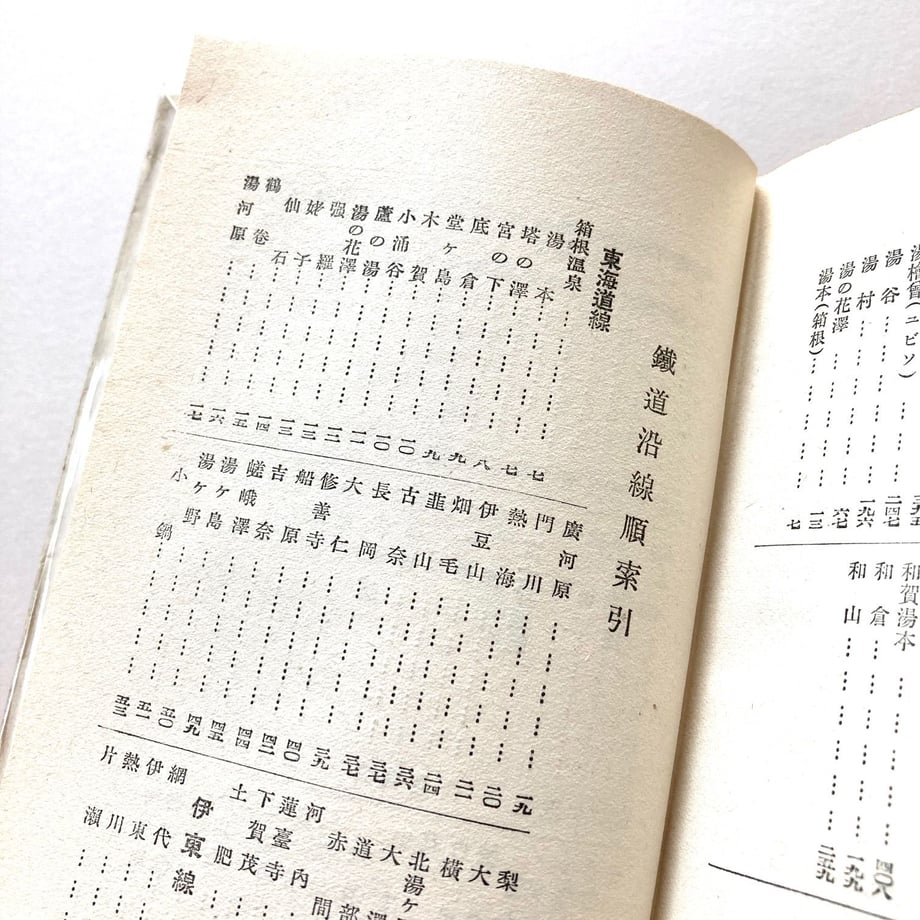 湯檜曾(ユビソ)
湯谷……二四七
湯村……一九六
湯の花澤……一三
湯本(箱根)……七
和賀湯本
和倉……一九九
和山……二九九
鐵道沿線順索引
東海道線
箱根温泉……七
湯本……七
塔の澤……八
宮の下……九
底倉……九
堂ヶ島……一〇
木賀……一〇
小涌谷……一一
蘆の湯……一二
湯の花澤……一三
强羅……一三
姥子……一四
仙石……一五
鶴巻……一六
湯河原……一七
廣河原……一九
門川……二〇
熱海……二二
伊豆山……二四
畑毛……三六
韮山……三七
古奈……三七
長岡……三九
大仁……四〇
修善寺……四二
船原……四四
吉奈……四五
嵯峨澤……四九
湯ヶ島……五〇
湯ヶ野……五一
小鍋……五三
梨
大
横
北湯ヶ
大澤
道部
赤間
河内
蓮臺寺
下賀茂
土肥
伊東線
網代
伊東
熱川
片瀬